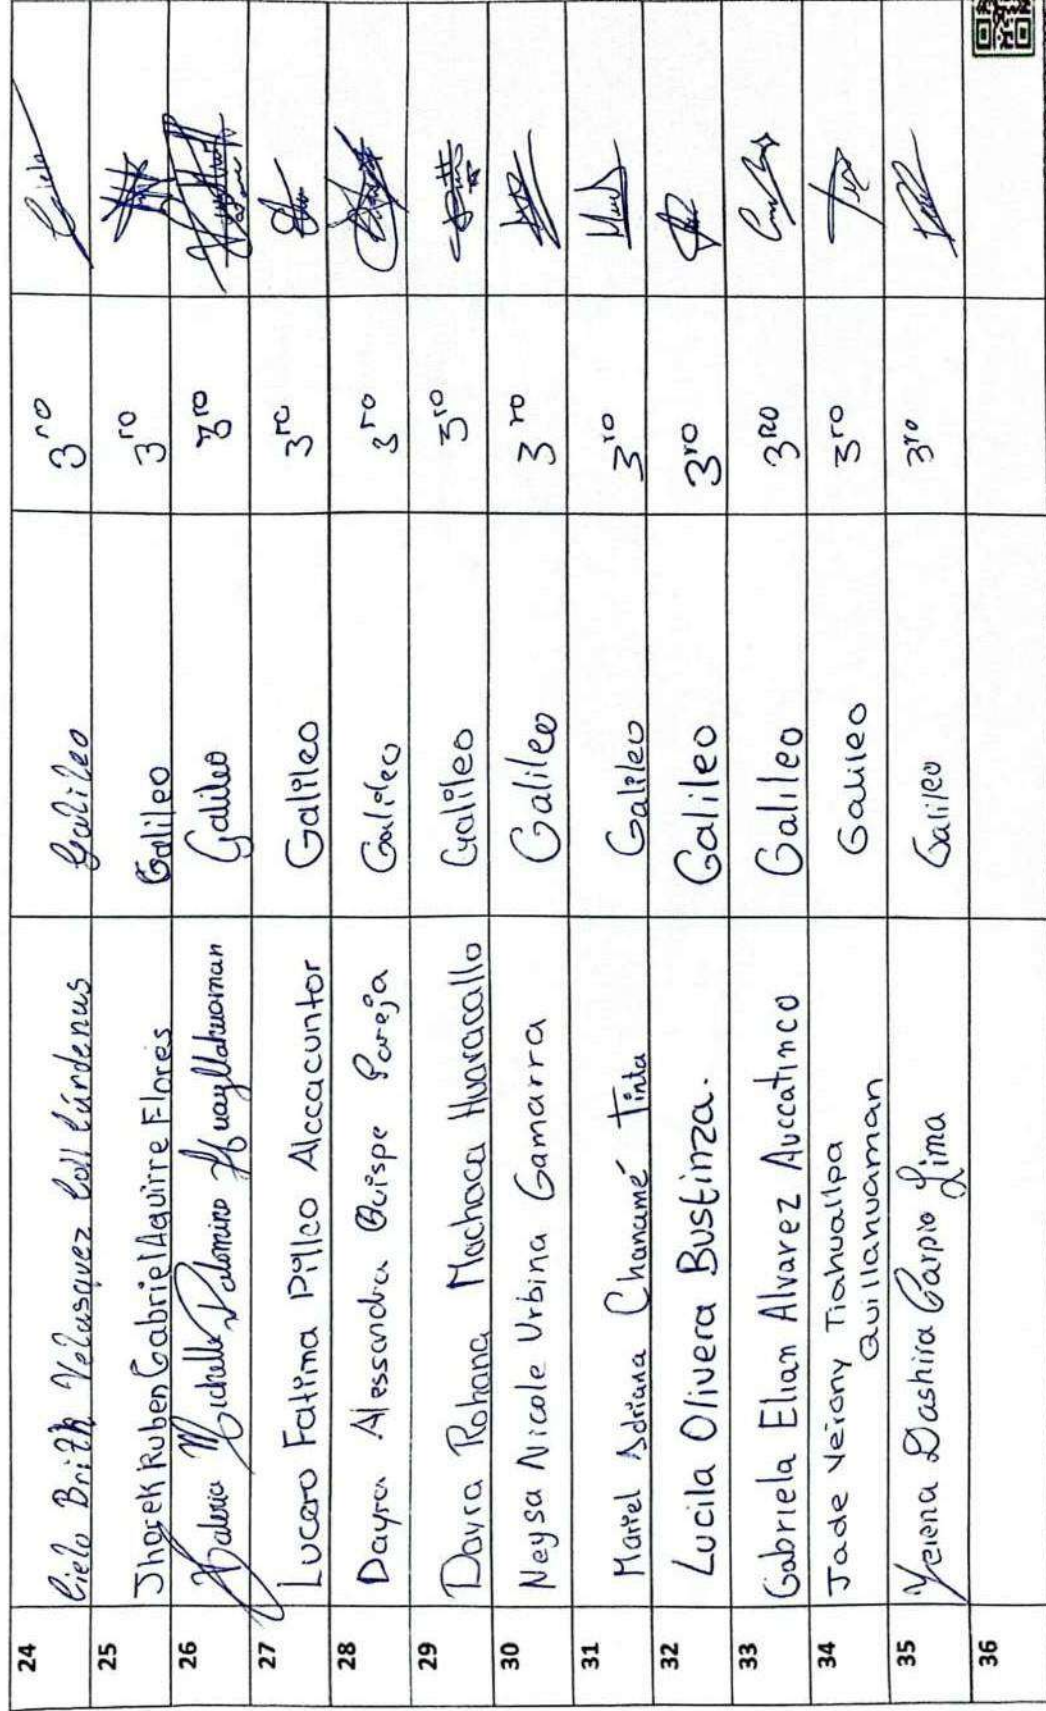 24 Cielo Brith Velasquez Coll Cárdenas Galileo 3ro Cielo
25 Jhorek Ruben Gabriel Aguirre Flores Galileo 3ro
26 Valeria Michelle Palomino Huayllahuaman Galileo 3ro
27 Lucero Fatima Pillco Alccacuntor Galileo 3ro
28 Dayra Alessandra Quispe Pareja Galileo 3ro
29 Dayra Rohana Machaca Huaracallo Galileo 3ro
30 Neysa Nicole Urbina Gamarra Galileo 3ro
31 Mariel Adriana Chanamé Tinta Galileo 3ro
32 Lucila Olivera Bustinza. Galileo 3ro
33 Gabriela Elian Alvarez Auccatinco Galileo 3RO
34 Jade Yeirony Tiahuallpa Galileo 3ro
Quillahuaman
35 Yeiena Dashira Carpio Lima Galileo 3ro
36